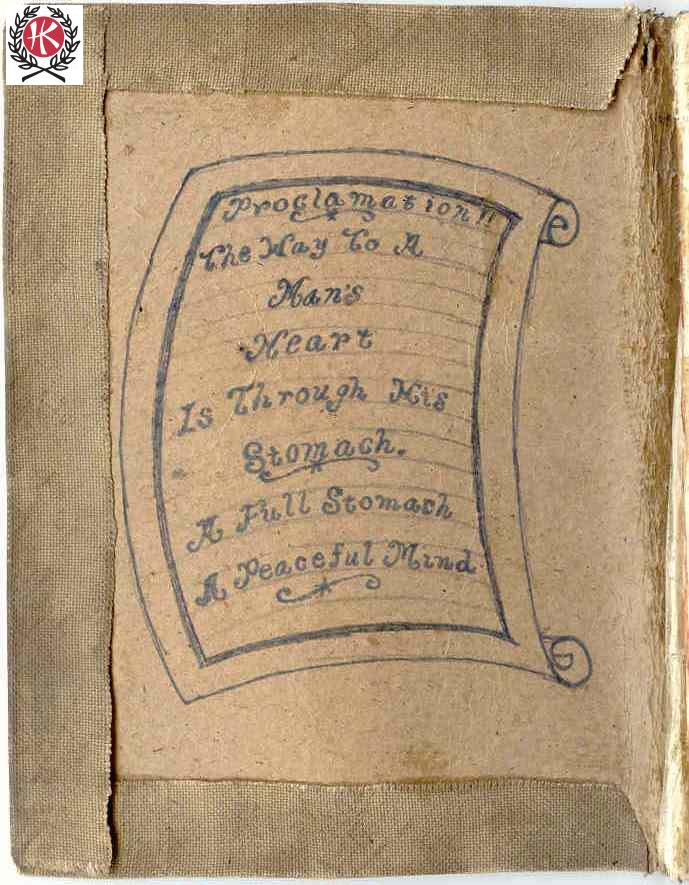 HK
Proclamation!!
The Way To A
Man's
Heart
Is Through His
Stomach.
A Full Stomach
A Peaceful Mind